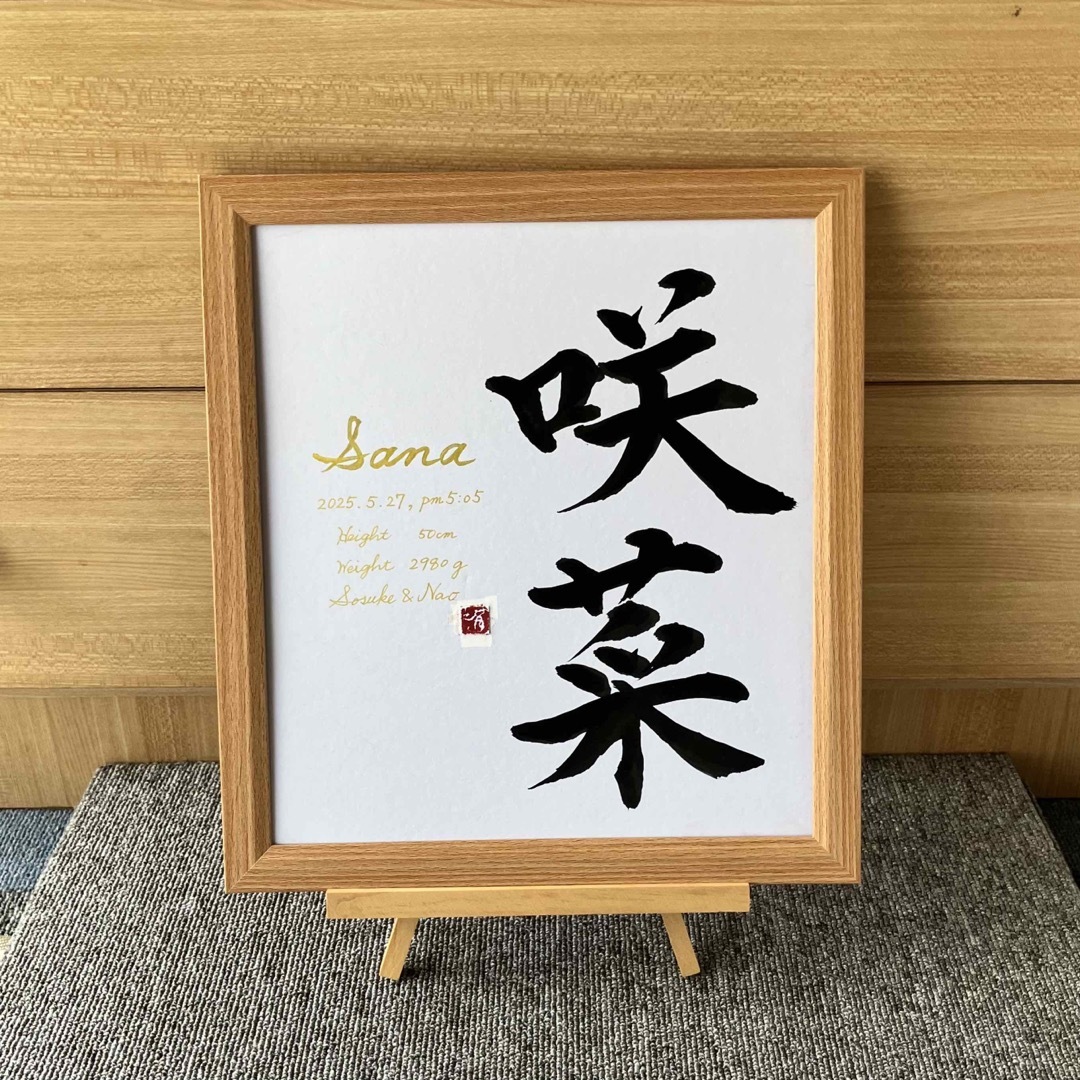 咲菜
Sana
2025.5.27, pm5:05
Height 50cm
Weight 2980g
Sosuke & Nao